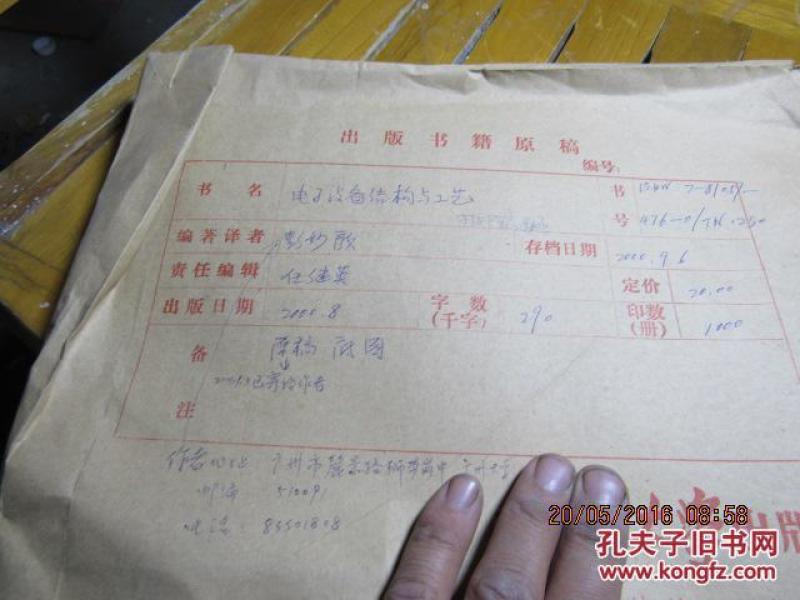 出版书籍原稿
编号:
书名 电子设备结构与工艺 书 ISBN 7-81057-
号 476-0/TN·250
编著译者 彭妙颜 存档日期 2000.9.6
责任编辑 任继英 定价 20.00
出版日期 2000.8 字数(千字) 290 印数(册) 1000
备注 原稿 附图
已寄给作者
作者地址 广州市麓景路狮带岗中
邮编 510091
电话: 83501808
出版
20/05/2016 08:58
孔夫子旧书网